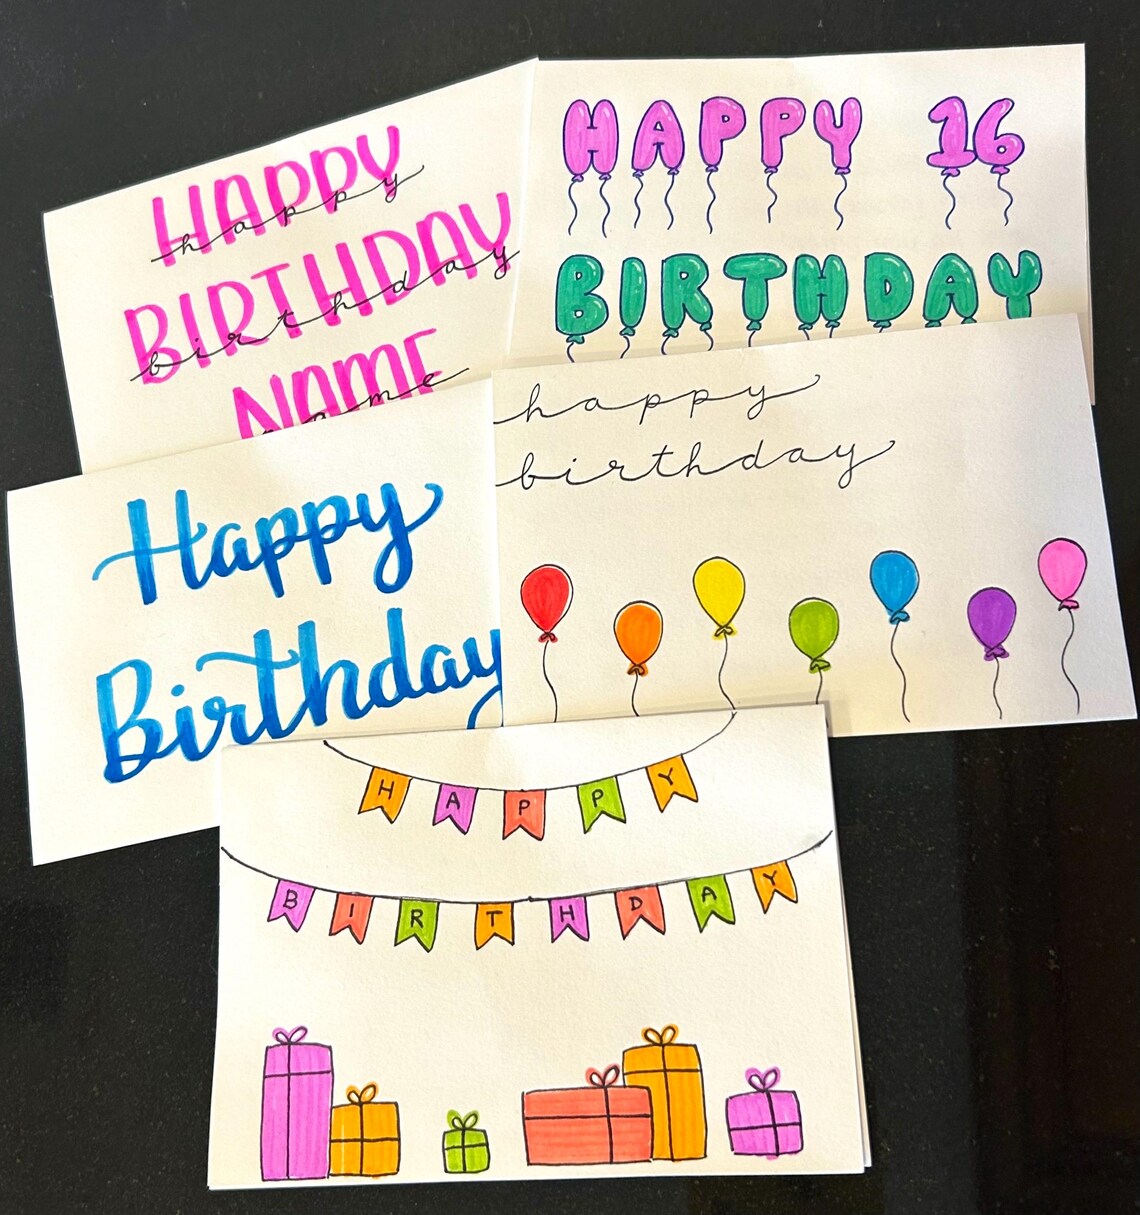 HAPPY
happy
BIRTHDAY
birthday
NAME
name
HAPPY 16
BIRTHDAY
Happy
Birthday
happy
birthday
HAPPY
BIRTHDAY